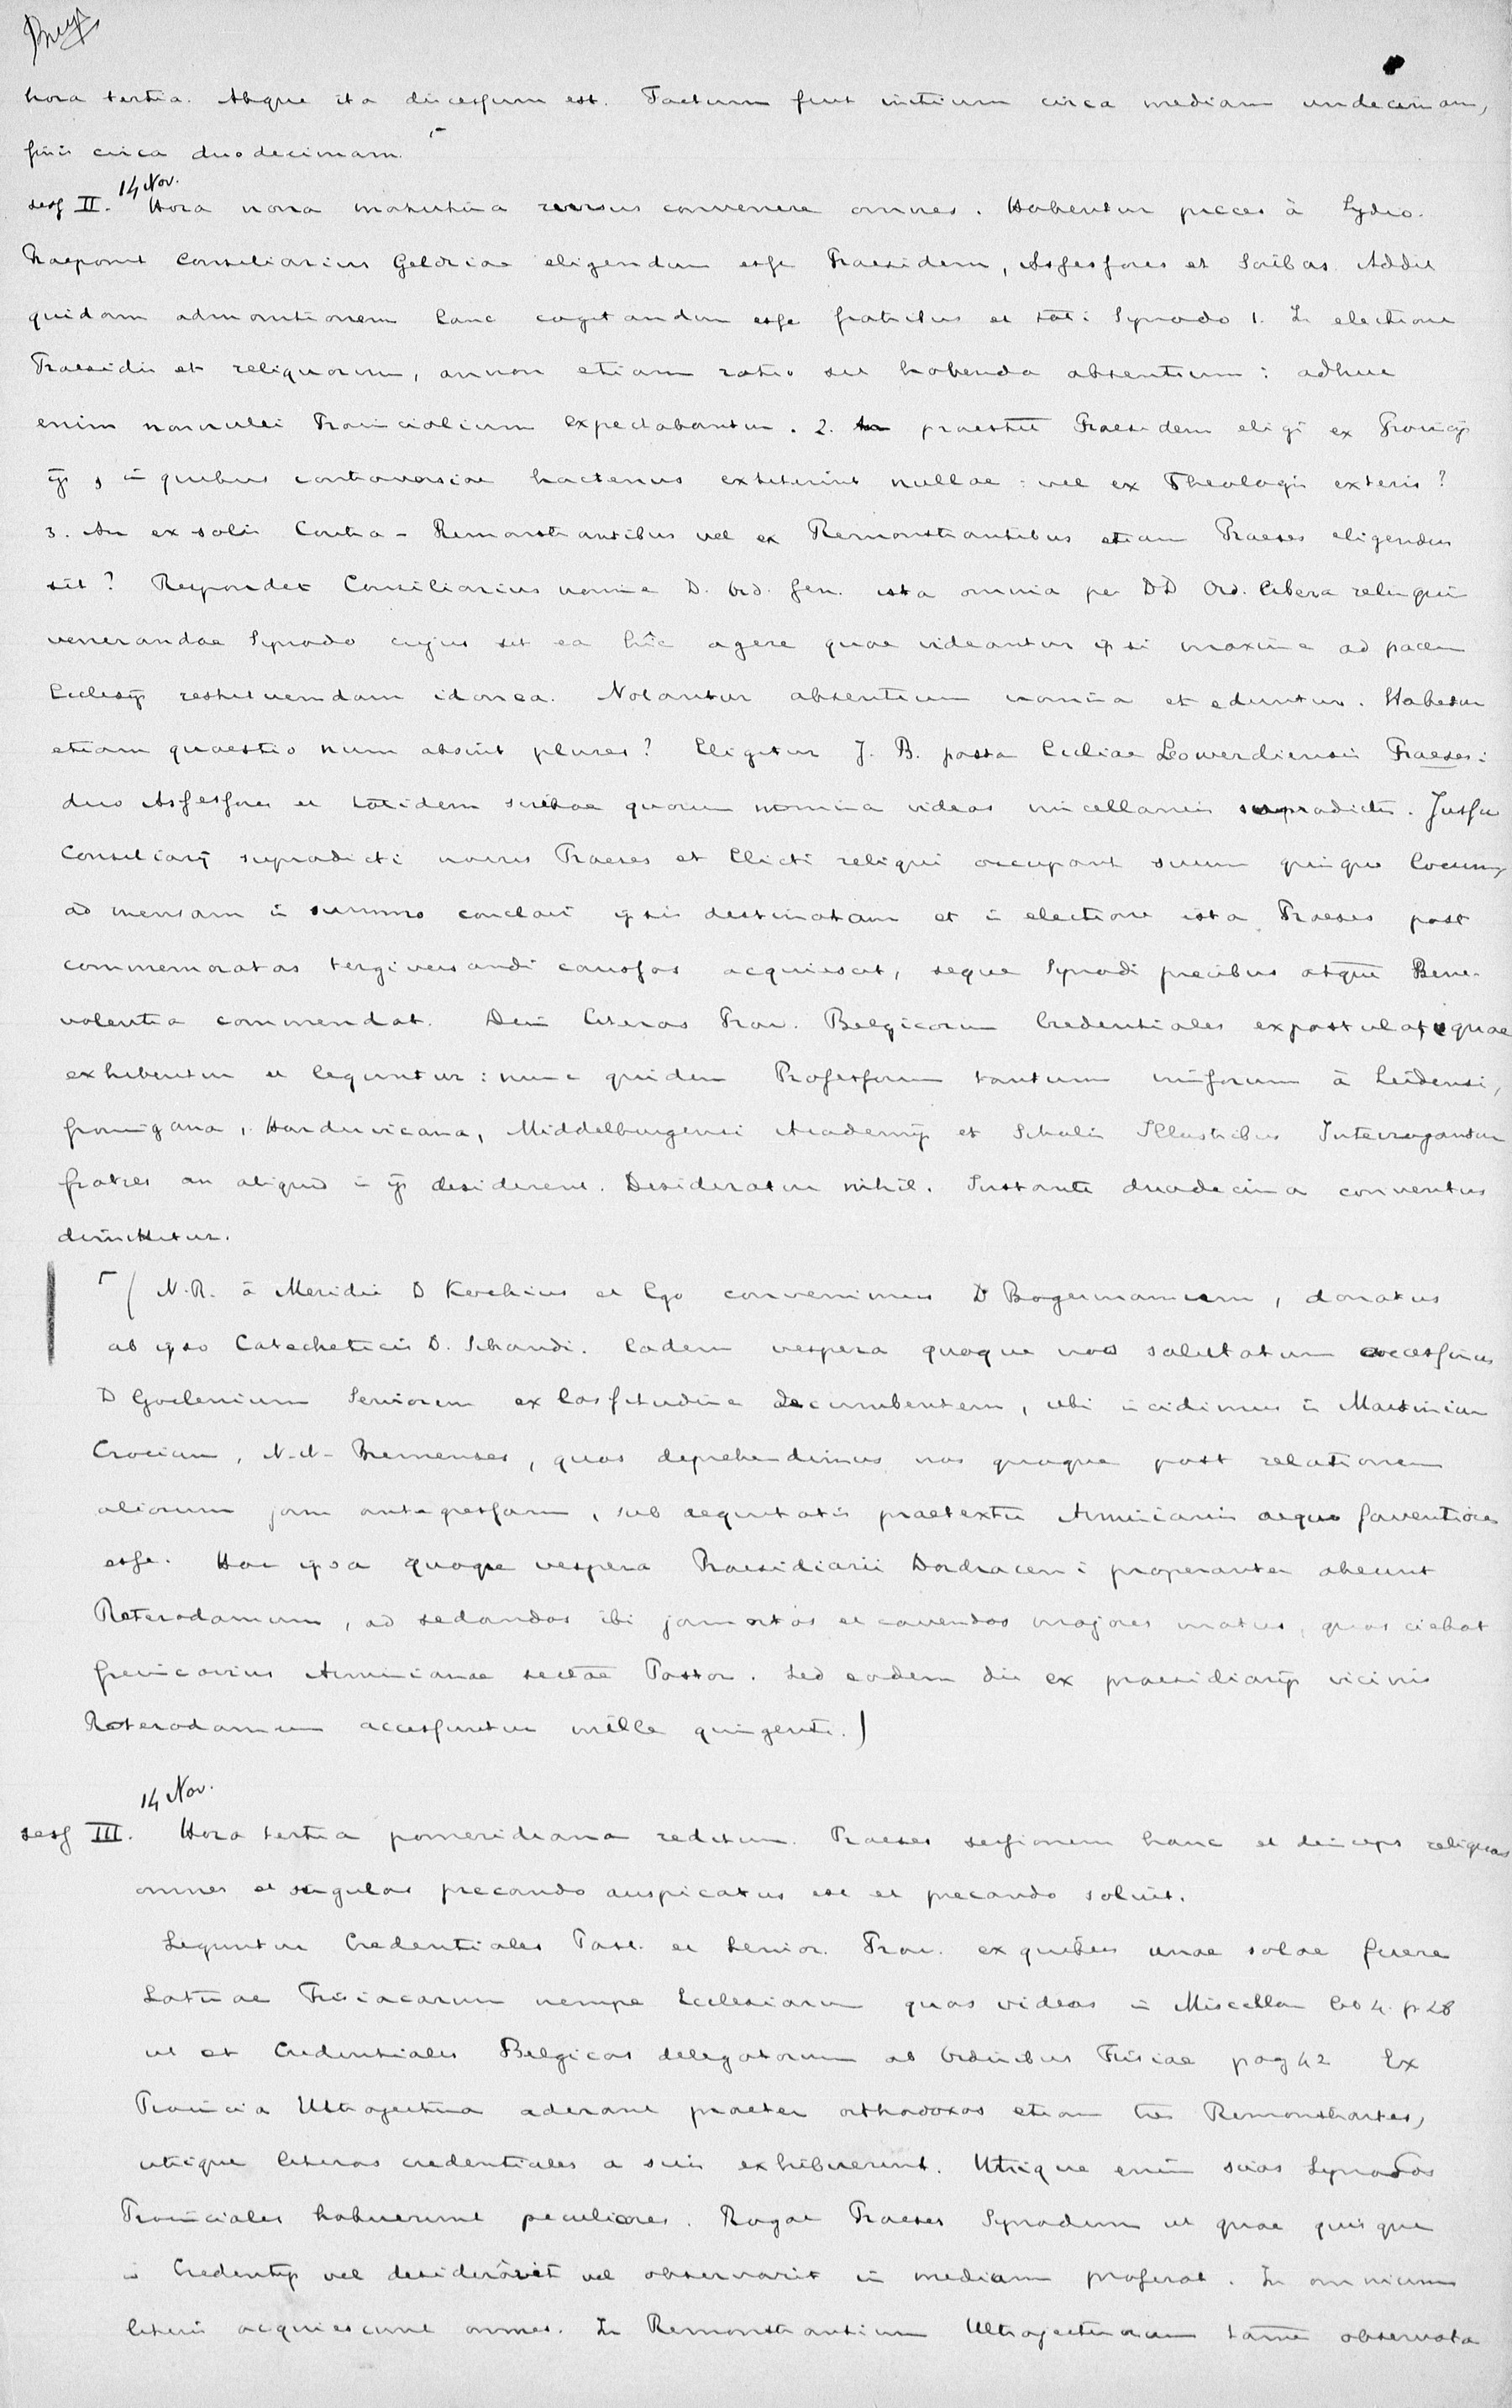 hora tertia. Atque ita discessum est. Factum fuit initium circa mediam undecimam,
finis circa duodecimam.
14 Nov.
sess II. Hora nona matutina rursus convenere omnes. Habentur preces à Lydio.
Praeponit Consiliarius Geldriae eligendum esse Praesidem, Assessores et Scribas. Addit
quidam admonitionem hanc cogitandum esse fratribus et toti Synodo 1. In electione
Praesidis et reliquorum, annon etiam ratio sit habenda absentium: adhuc
enim nonnulli Provincialium expectabantur. 2. An praestit Praesidem eligi ex Provincijs
ijs, in quibus controversiae hactenus extiterint nullae: vel ex Theologis exteris?
3. An ex solis Contra-Remonstrantibus vel ex Remonstrantibus etiam Praeses eligendus
sit? Respondet Consiliarius nomine D. Ord. Gen. ista omnia per DD Ord. libera relinqui
venerandae Synodo cujus sit ea hîc agere quae videantur ipsi maxime ad pacem
Eccles. restituendam idonea. Notantur absentium nomina et eduntur. Habetur
etiam quaestio num absint plures? Eligitur J. B. pastor Eccliae Leowerdiensis Praeses:
duo Assessores et totidem scribae quorum nomina videas miscellaneis supradictis. Jussu
Consiliarij supradicti novus Praeses et Electi reliqui occupant suum quinque locum,
ad mensam in summo conclavi ipsis destinatam et in electione ista Praeses post
commemoratas tergiversandi caussas acquiescit, seque Synodi precibus atque Bene-
volentia commendat. Dein literas Prov. Belgicorum Credentiales expostulat, quae
exhibentur et leguntur: nunc quidem Professorum tantum missorum à Leidensi,
Groningana, Harduvicana, Middelburgensi Academijs et Scholis Illustribus Interrogantur
fratres an aliquid in ijs desiderent. Desideratur nihil. Instante duodecima conventus
dimittitur.
( N.R. à Meridie D Kochius et Ego convenimus D Bogermannum, donatus
ab ipso Catecheticis D. Schandi. Eadem vespera quoque nos salutatum accessimus
D Goclenium Seniorem ex lassitudine decumbentem, ubi incidimus in Martinium
Crocium, N.N. Bremenses, quos deprehendimus nos quoque post relationem
aliorum jam antegressam, sub aequitatis praetextu Arminianis aequo faventiores
esse. Hac ipsa quoque vespera Praesidiarii Dordraceni properanter abeunt
Roterodamum, ad sedandos ibi jam ortos et cavendos majores motus, quos ciebat
Grevincovius Arminianae sectae Pastor. Sed eodem die ex praesidiarijs vicinis
Roterodamum accessuntur mille quingenti.)
14 Nov.
sess III. Hora tertia pomeridiana reditum. Praeses sessionem hanc et deinceps reliquas
omnes et singulas precando auspicatus est et precando solvit.
Leguntur Credentiales Past. et Senior. Prov. ex quibus unae solae fuere
Latinae Frisiacarum nempe Ecclesiarum quas videas in Miscellan lib 4. p 28
ut et Credentiales Belgicas delegatorum ab Ordinibus Frisiae pag 42 Ex
Provincia Ultrajectina aderant praeter orthodoxos etiam tres Remonstrantes,
utrique literas credentiales a suis exhibuerunt. Utrique enim suas Synodos
Provinciales habuerunt peculiares. Rogat Praeses Synodum ut quae quisque
in Credentijs vel desideravit vel observarit in medium proferat. In omnium
literis acquiescunt omnes. In Remonstrantium Ultrajectinorum tamen observata